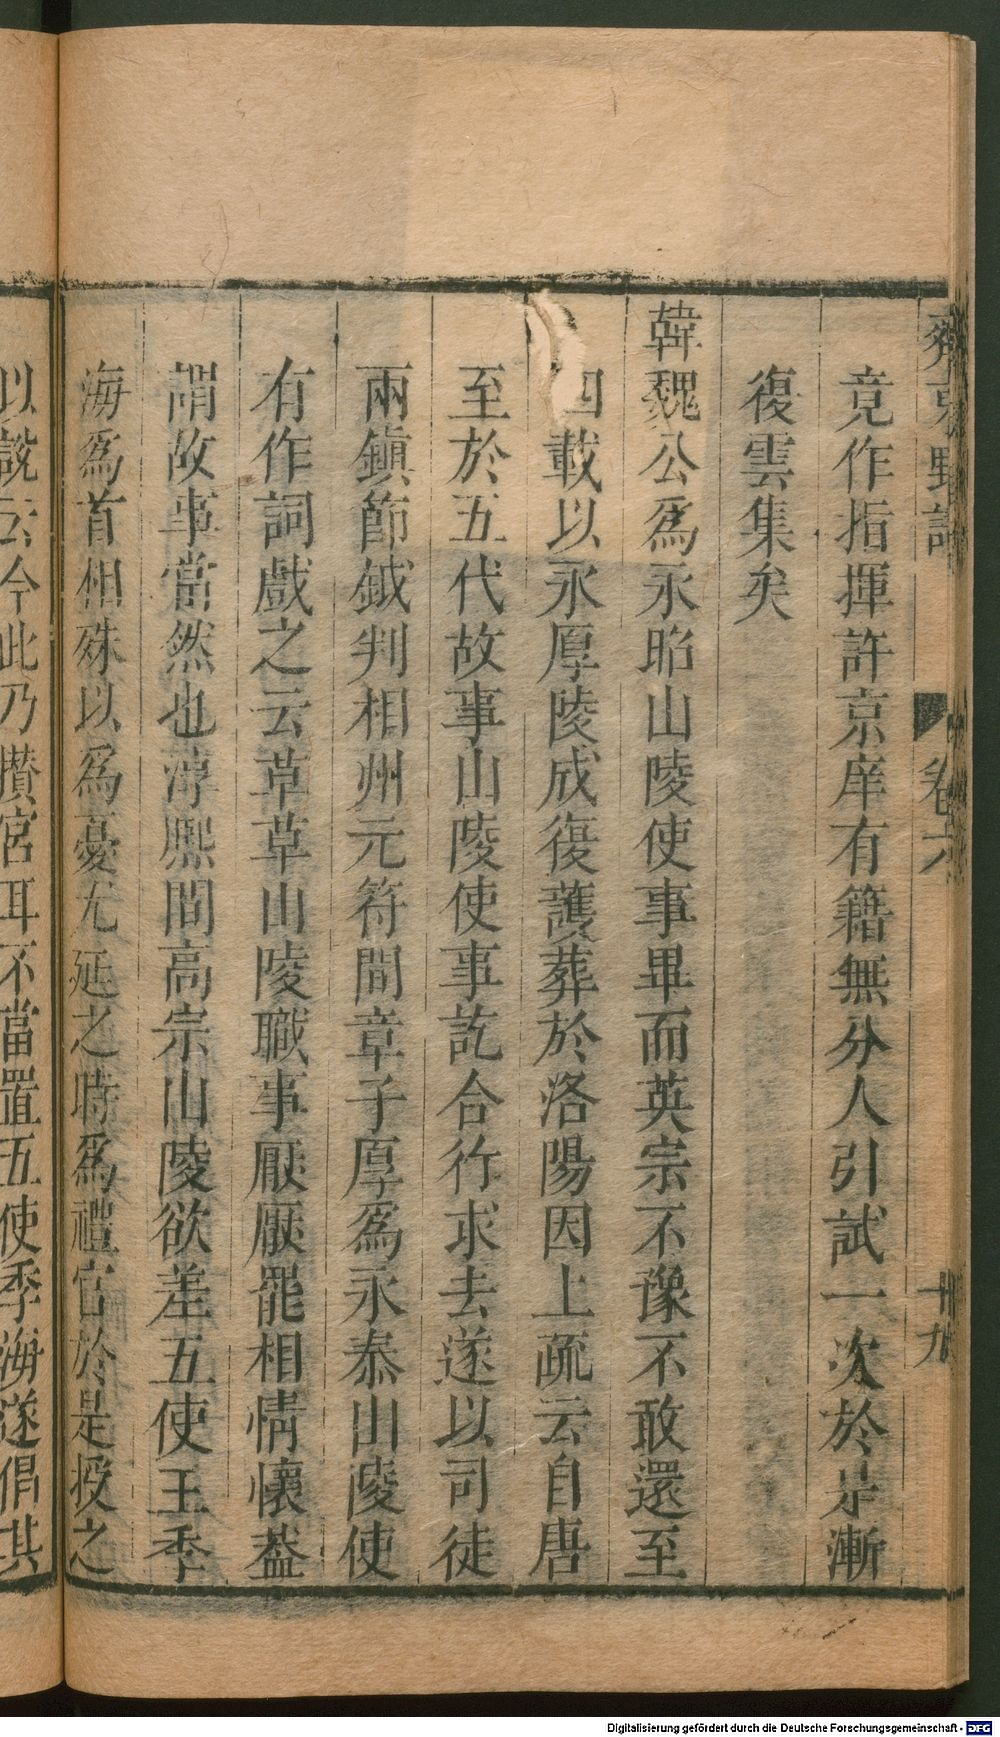 齊東野語 卷六 十九
竟作指揮許京庠有籍無分人引試一次於是漸
復雲集矣
韓魏公爲永昭山陵使事畢而英宗不豫不敢還至
四載以永厚陵成復護葬於洛陽因上疏云自唐
至於五代故事山陵使事訖合行求去遂以司徒
兩鎮節鉞判相州元符間章子厚爲永泰山陵使
有作詞戲之云草草山陵職事厭厭罷相情懷蓋
謂故事當然也淳熙間高宗山陵欲差五使王季
海爲首相殊以爲憂尤延之時爲禮官於是授之
以說云今此乃攢宮耳不當置五使季海遂倡其
Digitalisierung gefördert durch die Deutsche Forschungsgemeinschaft - DFG